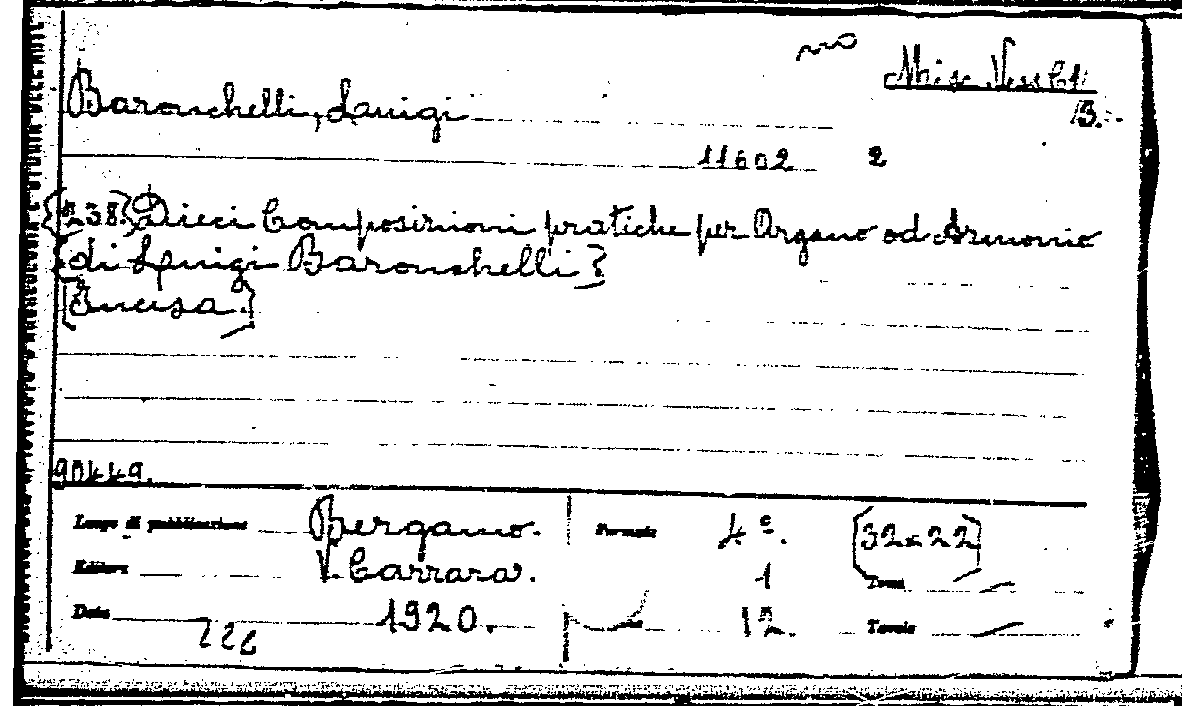 Misc. Vess. C4
Baronchelli, Luigi
13.
11602 2
{238} Dieci Composizioni pratiche per Organo od Armonio
{di Luigi Baronchelli}
[Incisa.]
90449.
Luogo di pubblicazione Bergamo. Formato 4º. [32x22]
Editore V. Carrara. 1 Tomi
Data 1920. 12. Tavole
226